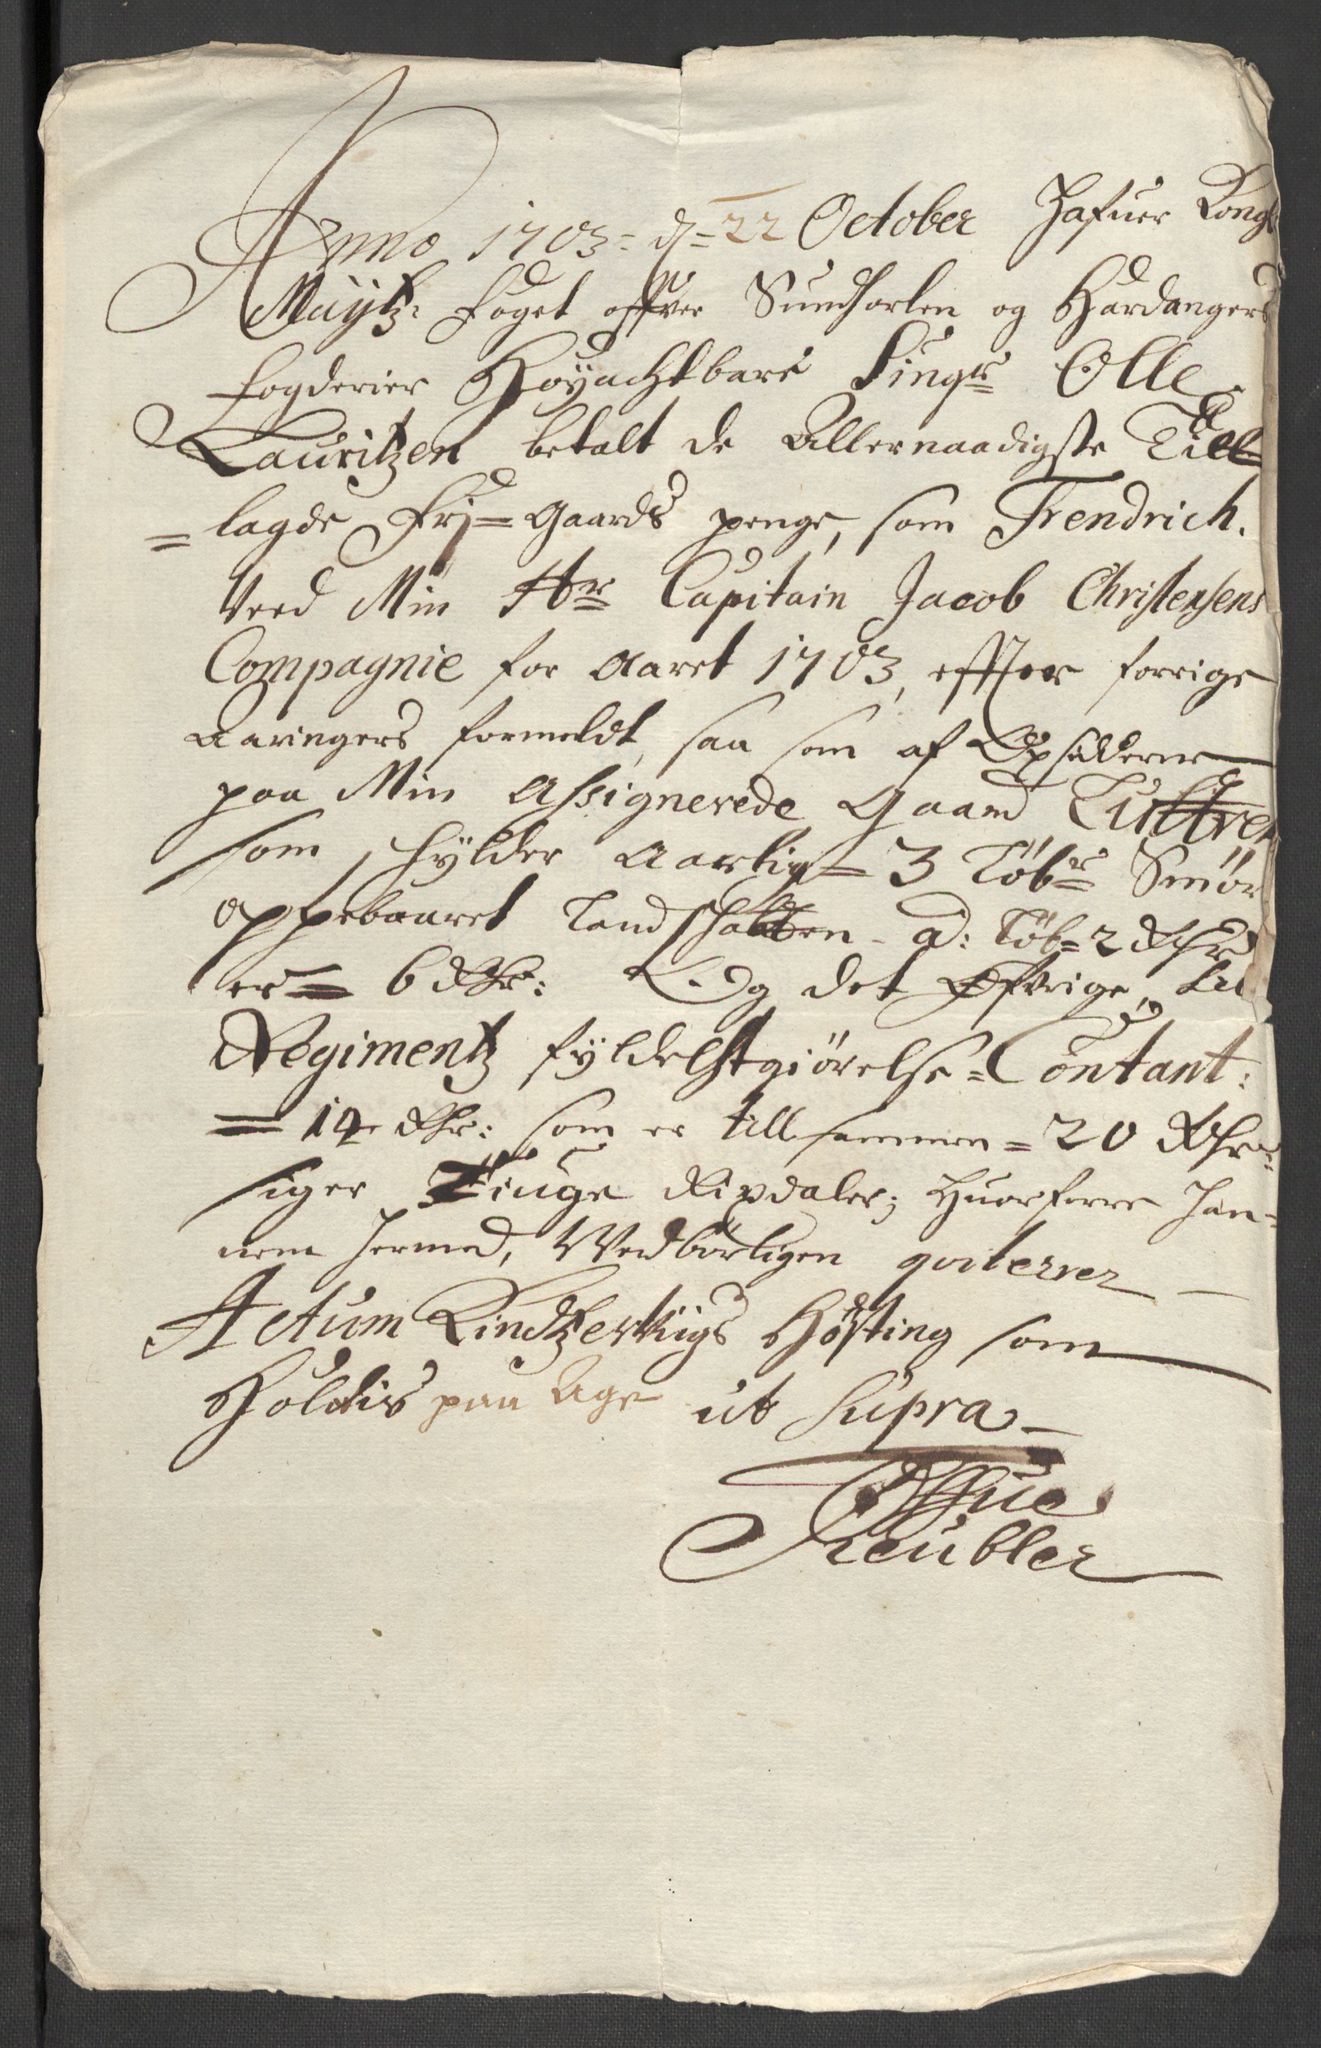 Anno 1703 = d = 22 October Hafuer Kongl
Maÿtz: Foget offuer Sundhorlen og Hardangers
fogderier Höÿachtbare Singr Olle
Lauritzen betalt de Allernaadigste Till
= lagde Frj = Gaards penge, som Frendrich.
Ved Min Hr Capitain Jacob Christensens
Compagnie for Aaret 1703, effter forrige
Aaringers formeldt, saa som af Opsidderne
paa Min Assignerede Gaard
som skylder Aarlig = 3 Löbr Smör
oppebaaret Landschatten a: Löb = 2 Rdr
er = 6 Rdr: Og det Øfrige,
Regimentz fyldestgiörelse = Contant:
= 14 Rdr: som er tillsammen = 20 Rdr
siger Tiuge Rixdaler; Huorforre Han =
nem hermed, Wedbörligen qviterer
Actum Kindtzerwigs Hösting som
Holdis paa Age ut Supra
Treubler